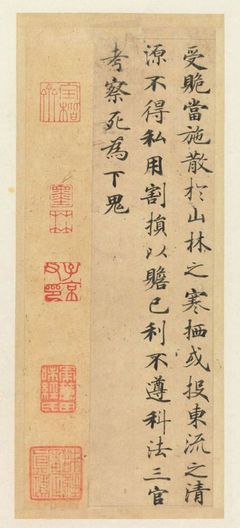 受賄當施散於山林之寒栖或投東流之清
源不得私用割損以贍己利不遵科法三官
考察死為下鬼
墨林
子京